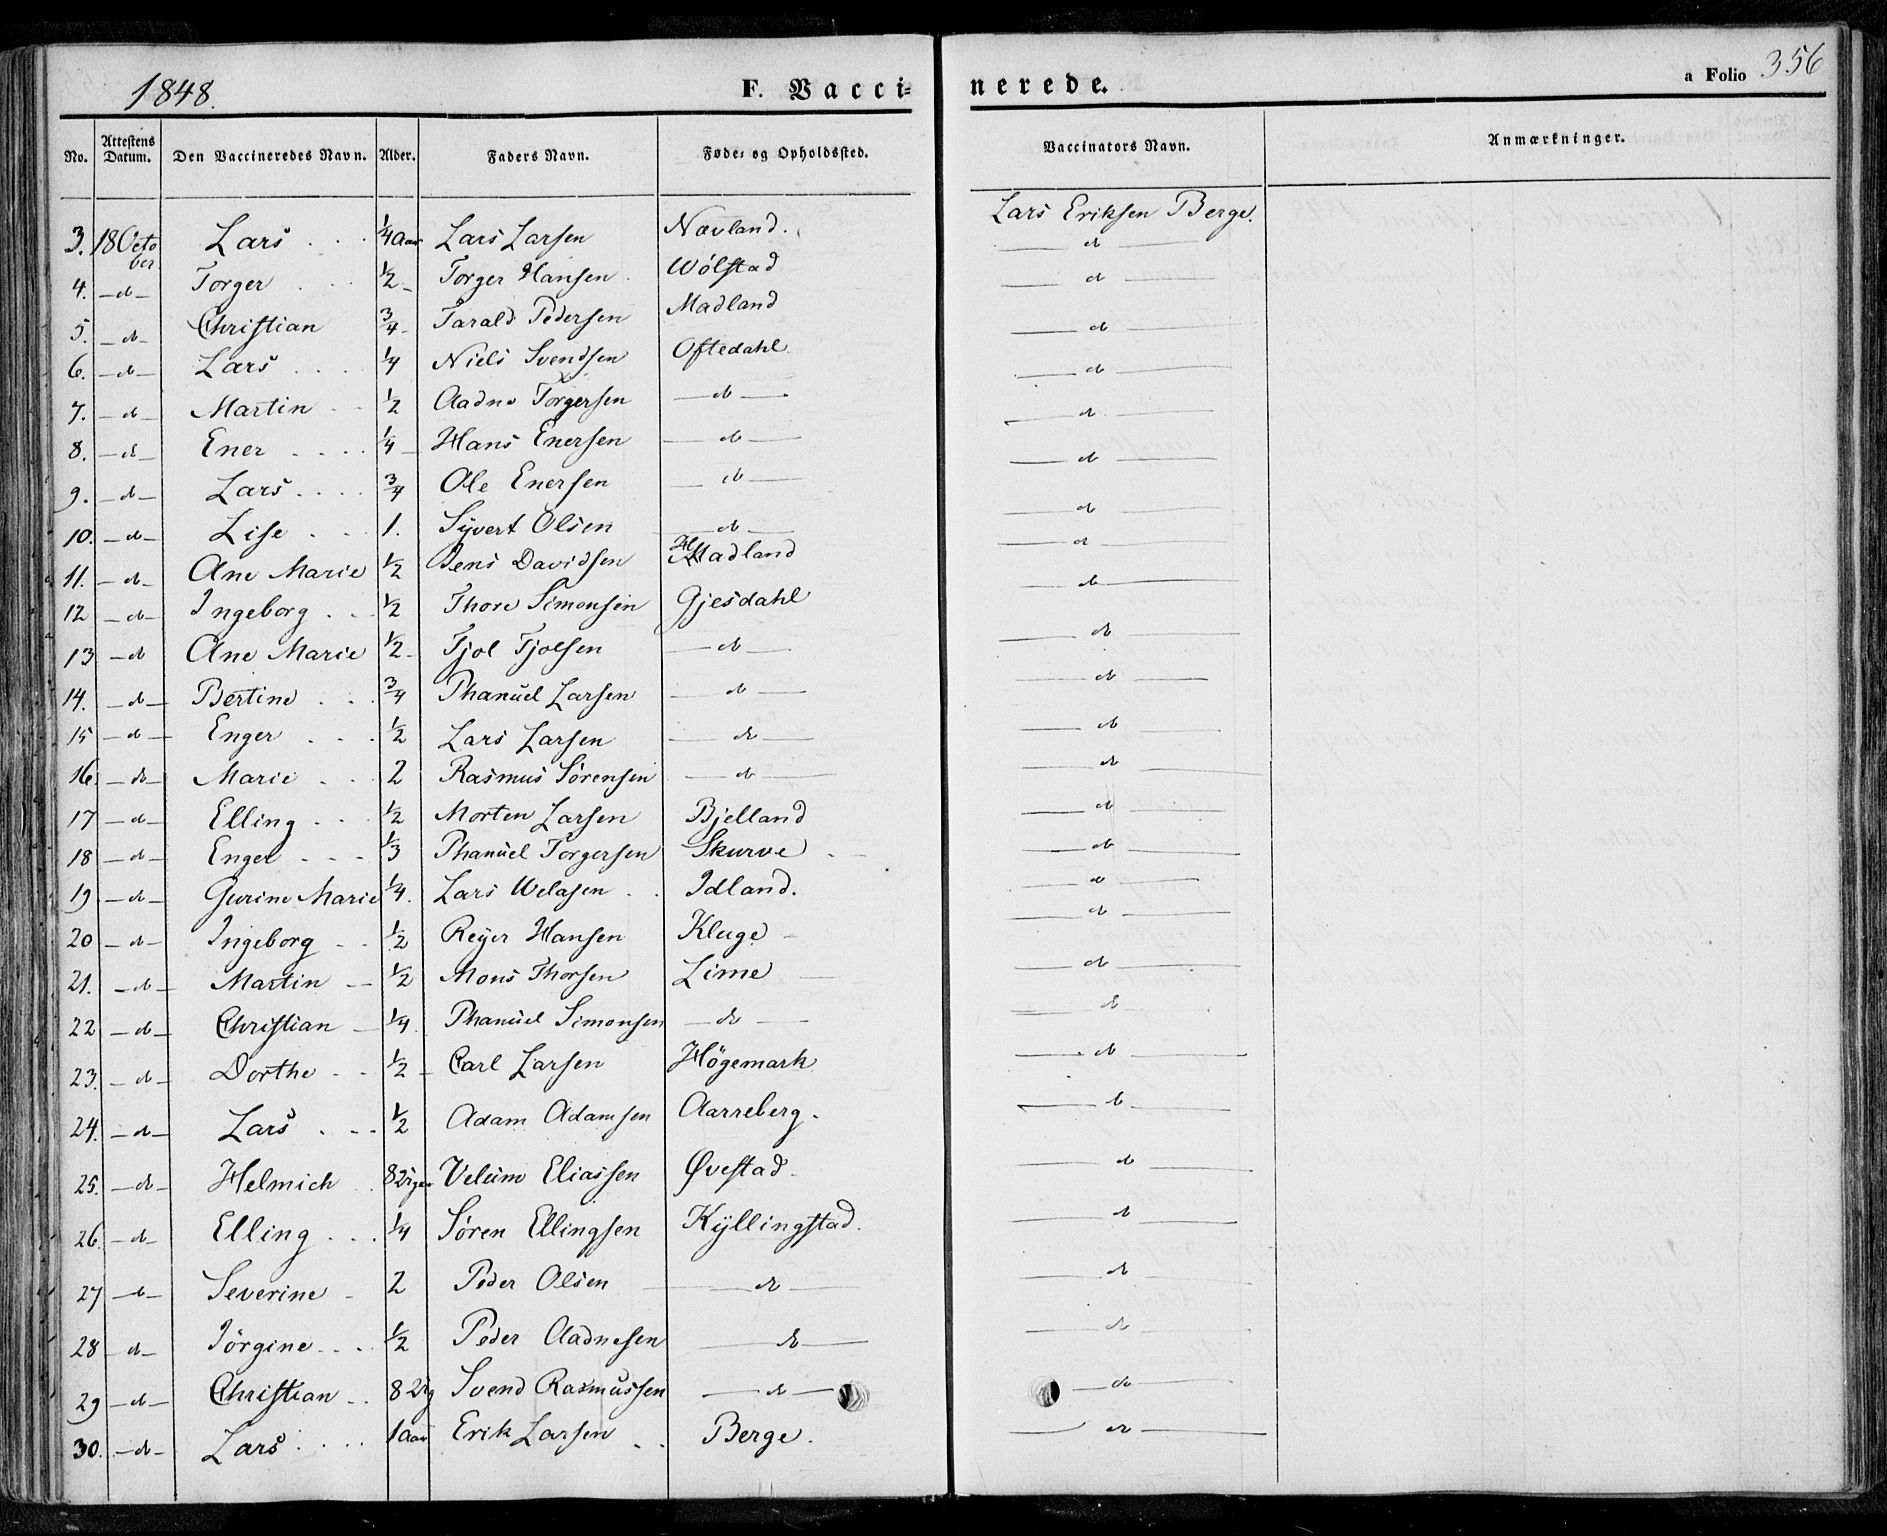 1848. F. Vacci-nerede. a Folio 356
No. Attestens Datum. Den Vaccineredes Navn. Alder. Faders Navn. Føde- og Opholdssted. Vaccinators Navn. Anmærkninger.
3. 18 October Lars 1/4 Aar Lars Larsen Nævland. Lars Eriksen Berge.
4. -d- Torger 1/2 Torger Hansen Wølstad -d-
5. -d- Christian 3/4 Tarald Pedersen Madland -d-
6. -d- Lars 1/4 Niels Svendsen Oftedahl -d-
7. -d- Martin 1/2 Aadne Torgersen -d- -d-
8. -d- Ener 1/4 Hans Enersen -d- -d-
9. -d- Lars 3/4 Ole Enersen -d- -d-
10. -d- Lise 1. Syvert Olsen -d- -d-
11. -d- Ane Marie 1/2 Jens Davidsen Madland -d-
12 -d- Ingeborg 1/2 Thore Simonsen Gjesdahl -d-
13 -d Ane Marie 1/2 Tjol Tjolsen -d- -d-
14. -d- Bertine 3/4 Phanuel Larsen -d- -d-
15 -d- Enger 1/2 Lars Larsen -d- -d-
16. -d- Marie 2 Rasmus Sørensen -d- -d-
17 -d- Elling 1/2 Morten Larsen Bjelland -d-
18 -d- Engel 1/3 Phanuel Torgersen Skurve -d-
19 -d- Gurine Marie 1/4. Lars Welasen Idland. -d-
20 -d- Ingeborg 1/2 Reyer Hansen Kluge -d-
21. -d- Martin 1/2 Mons Thorsen Lime -d-
22 -d- Christian 1/4 Phanuel Simonsen -d- -d-
23. -d- Dorthe 1/2 Carl Larsen Högemark -d-
24. -d- Lars 1/2 Adam Adamsen Aarreberg. -d-
25. -d- Helmich 8 Uger Velum Eliassen Øvestad -d-
26. -d- Elling 1/4 Søren Ellingsen Kyllingstad. -d-
27 -d- Severine 2 Peder Olsen -d- -d-
28 -d- Jörgine 1/2 Peder Aadnesen -d- -d-
29 -d- Christian 8 Ug Svend Rasmussen -d- -d-
30. -d- Lars 1 Aar Erik Larsen Berge. -d-